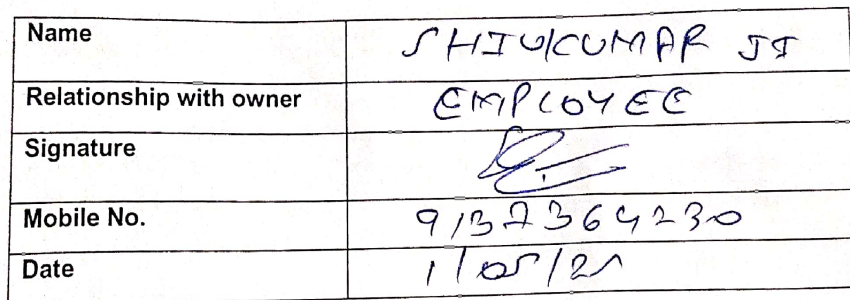 Name SHIVKUMAR JI
Relationship with owner EMPLOYEE
Signature
Mobile No. 9137364230
Date 1/05/21